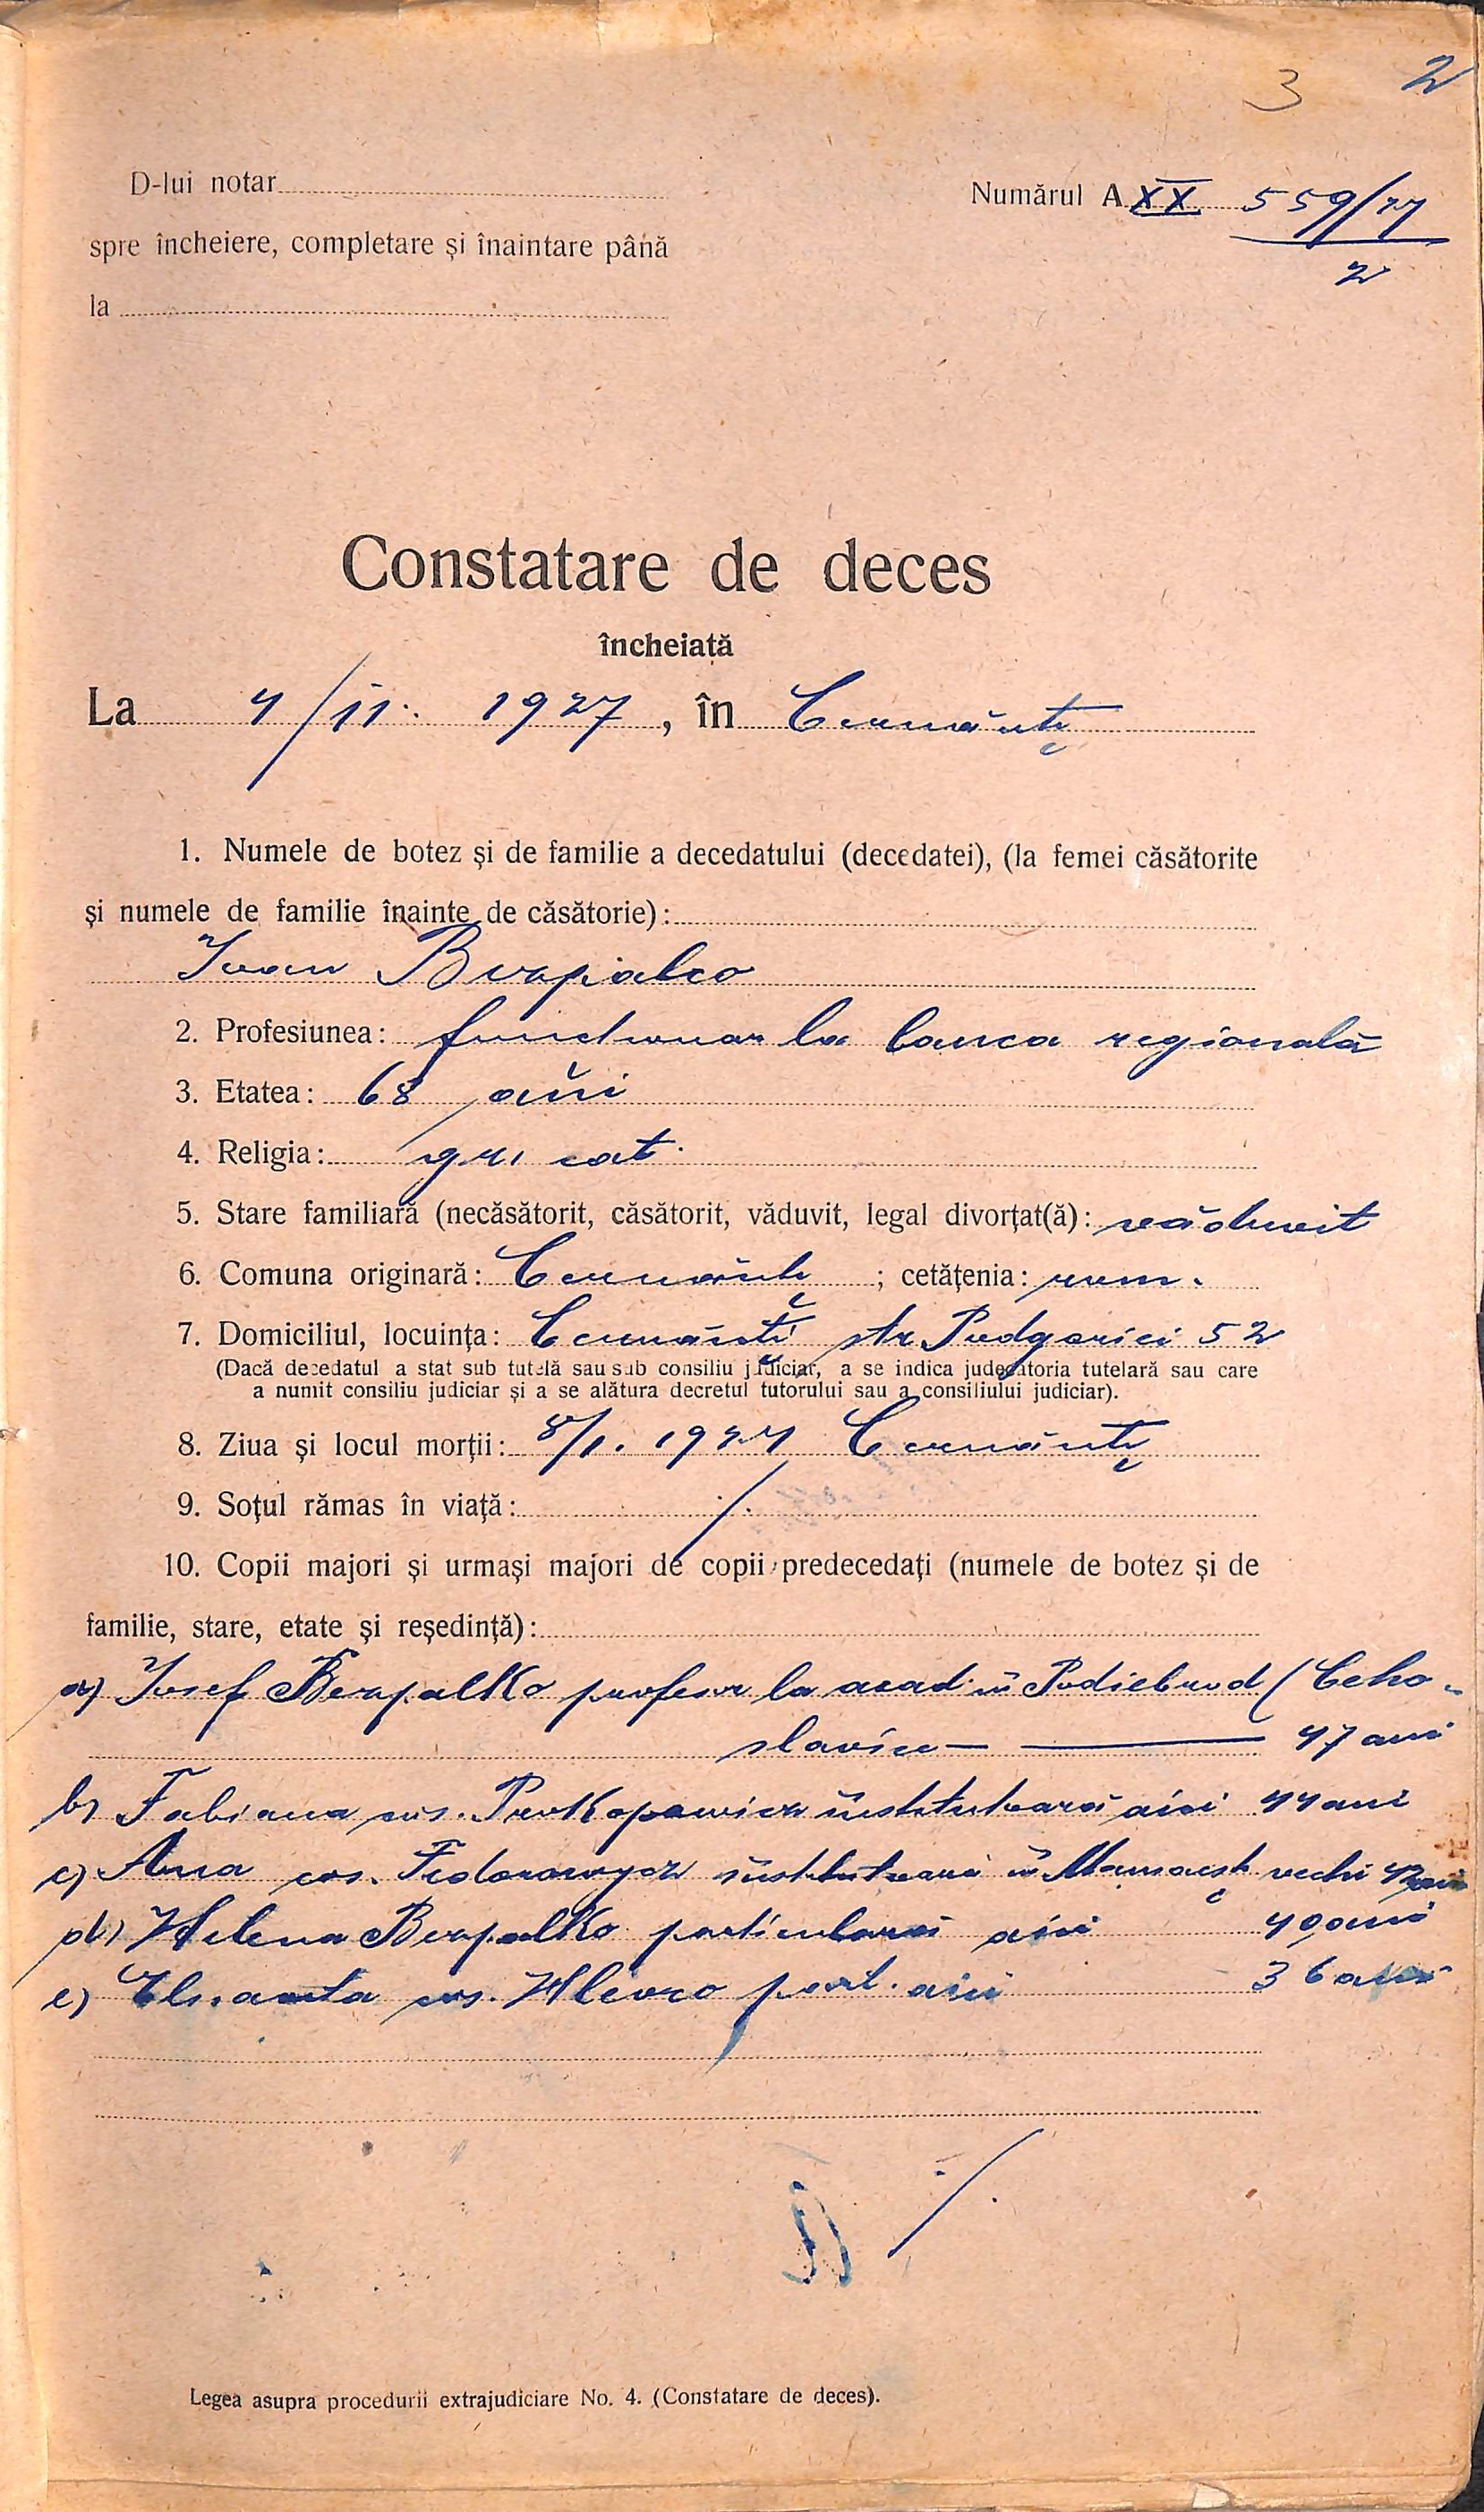 3 2
D-lui notar
Numărul A XX 559/27
2
spre încheiere, completare și înaintare până
la
Constatare de deces
încheiată
La 4/II. 1927, în Cernăuți
1. Numele de botez și de familie a decedatului (decedatei), (la femei căsătorite
și numele de familie înainte de căsătorie):
Ioan Bezpalco
2. Profesiunea: funcționar la banca regională
3. Etatea: 68 ani
4. Religia: gr. cat.
5. Stare familiară (necăsătorit, căsătorit, văduvit, legal divorțat(ă): văduvit
6. Comuna originară: Cernăuți; cetățenia: rom.
7. Domiciliul, locuința: Cernăuți str. Podgoriei 52
(Dacă decedatul a stat sub tutelă sau sub consiliu judiciar, a se indica judecătoria tutelară sau care
a numit consiliu judiciar și a se alătura decretul tutorului sau a consiliului judiciar).
8. Ziua și locul morții: 8/1. 1927 Cernăuți
9. Soțul rămas în viață: ·/.
10. Copii majori și urmași majori de copii predecedați (numele de botez și de
familie, stare, etate și reședință):
a) Josef BezpalKo profesor la acad. în Podiebrad (Ceho-
slavia — 47 ani
b) Fabiana căs. ProKopowicz institutoară aici 44 ani
c) Ana căs. Fedorowycz institutoară în Mamaești vechi 42 ani
d) Helena BezpalKo particulară aici 40 ani
e) căs. part. aici 36 ani
·/.
Legea asupra procedurii extrajudiciare No. 4. (Constatare de deces).